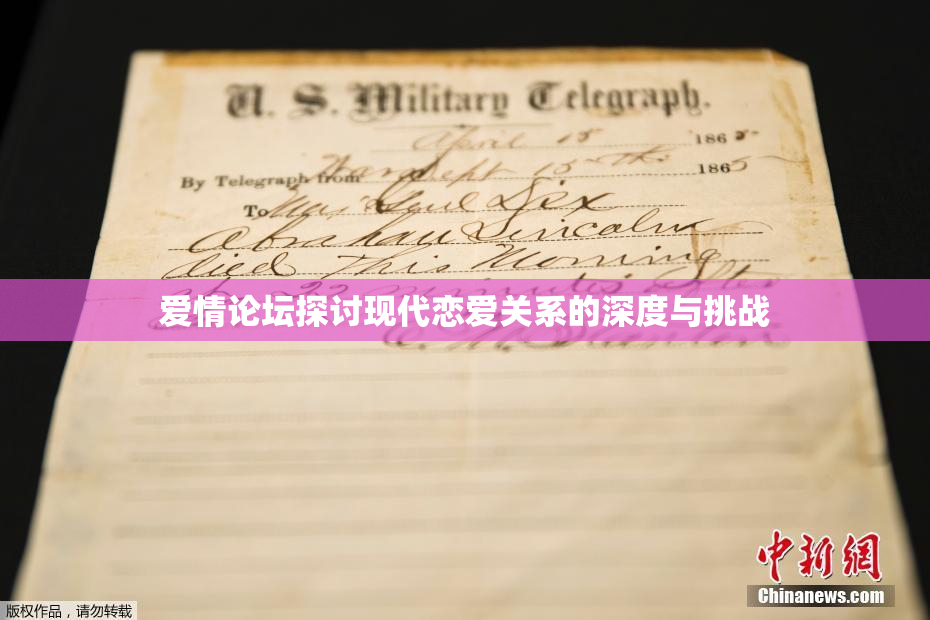 U. S. Military Telegraph.
April 15 1865
By Telegraph from War Dept 15th 1865
To Maj Genl Dix
Abraham Lincoln
died This Morning
at 22 minutes after
爱情论坛探讨现代恋爱关系的深度与挑战
E. M. Stanton
中新网
Chinanews.com
版权作品，请勿转载